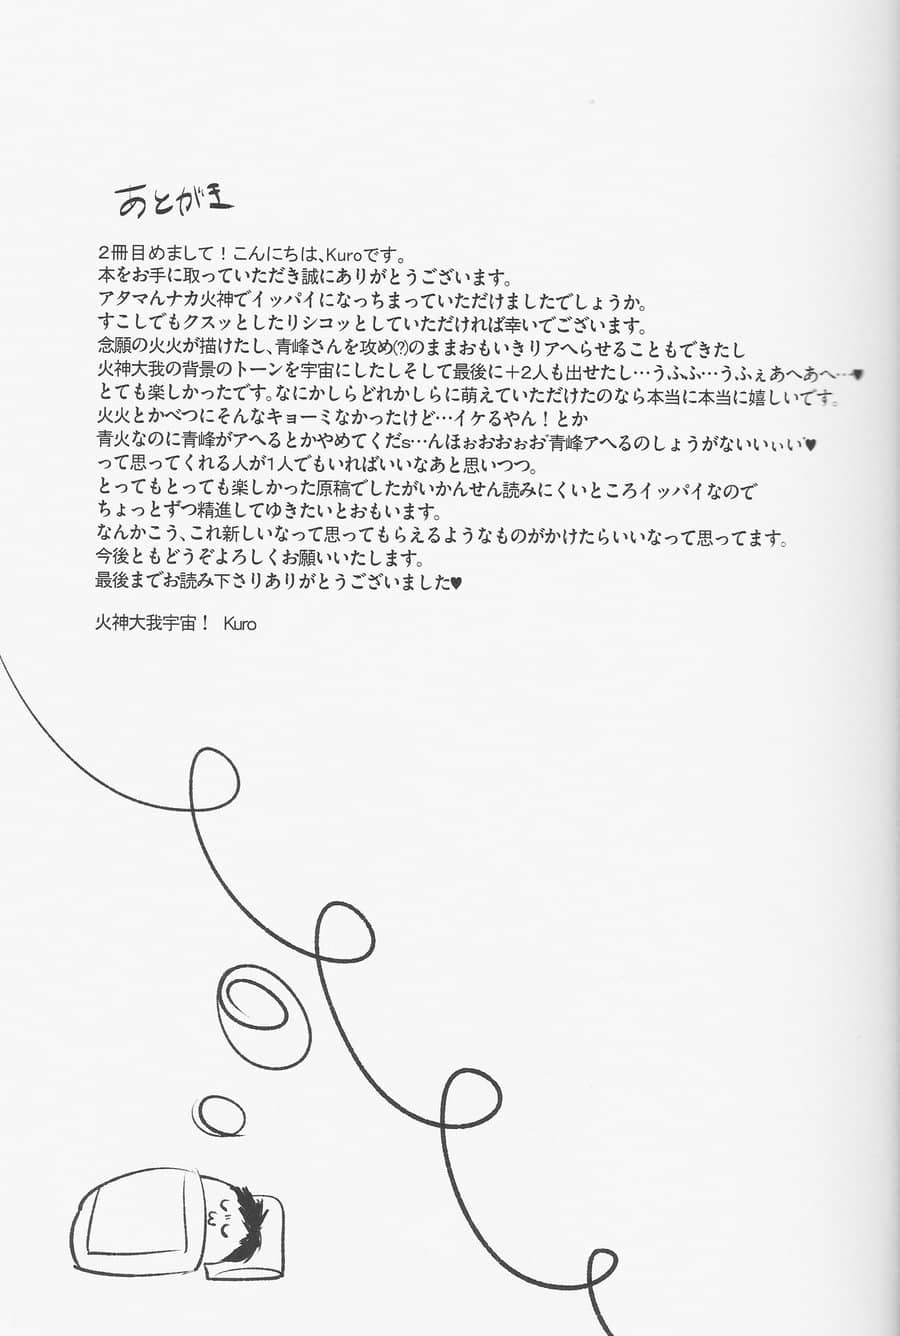 あとがき
2冊目めまして！こんにちは、Kuroです。
本をお手に取っていただき誠にありがとうございます。
アタマんナカ火神でイッパイになっちまっていただけましたでしょうか。
すこしでもクスッとしたりシコッとしていただければ幸いでございます。
念願の火火が描けたし、青峰さんを攻め(?)のままおもいきりアヘらせることもできたし
火神大我の背景のトーンを宇宙にしたしそして最後に＋2人も出せたし…うふふ…うふぇあへあへ…♥
とても楽しかったです。なにかしらどれかしらに萌えていただけたのなら本当に本当に嬉しいです。
火火とかべつにそんなキョーミなかったけど…イケるやん！とか
青火なのに青峰がアヘるとかやめてくだs…んほぉおおぉぉ゛青峰アヘるのしょうがないいぃい゛♥
って思ってくれる人が1人でもいればいいなあと思いつつ。
とってもとっても楽しかった原稿でしたがいかんせん読みにくいところイッパイなので
ちょっとずつ精進してゆきたいとおもいます。
なんかこう、これ新しいなって思ってもらえるようなものがかけたらいいなって思ってます。
今後ともどうぞよろしくお願いいたします。
最後までお読み下さりありがとうございました♥
火神大我宇宙！ Kuro